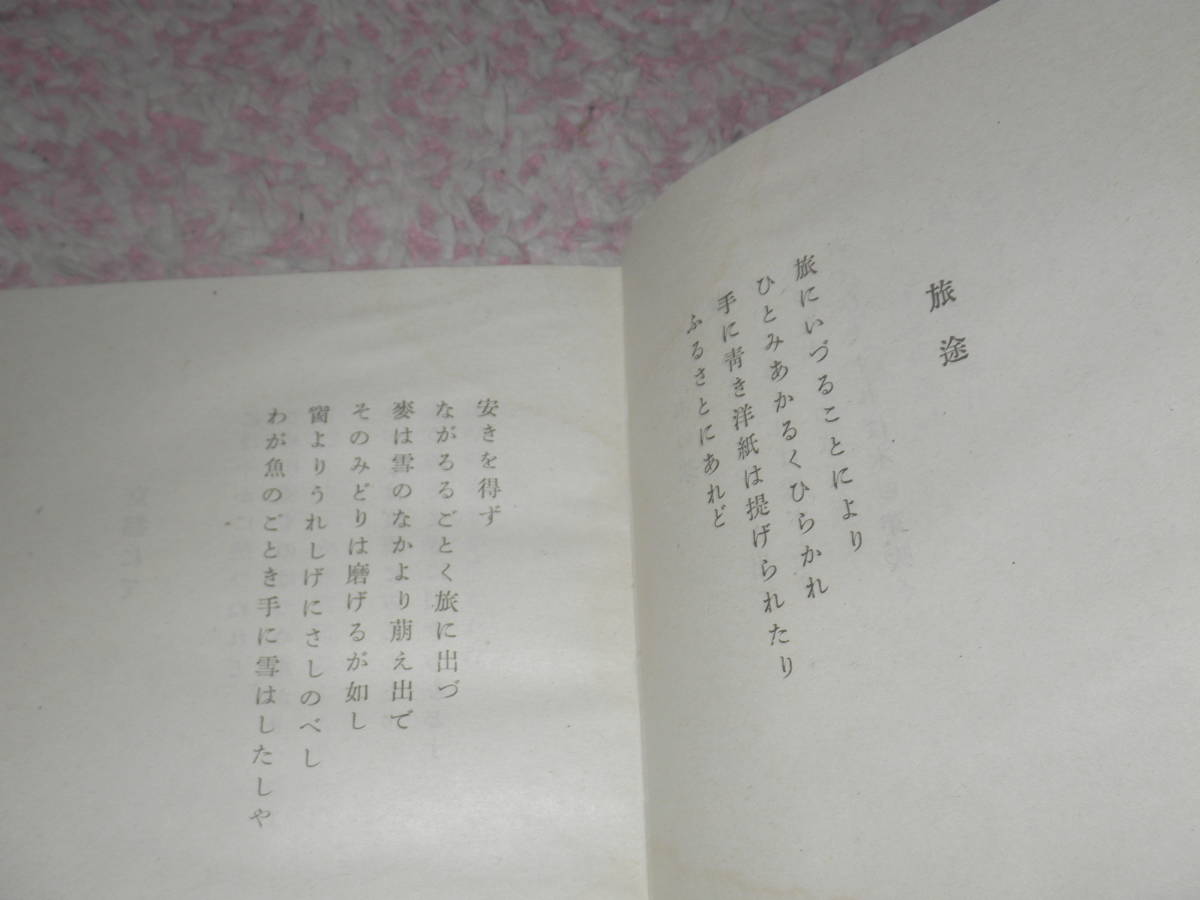 旅途
旅にいづることにより
ひとみあかるくひらかれ
手に靑き洋紙は提げられたり
ふるさとにあれど
安きを得ず
ながるるごとく旅に出づ
麥は雪のなかより萠え出で
そのみどりは磨げるが如し
窗よりうれしげにさしのべし
わが魚のごとき手に雪はしたしや